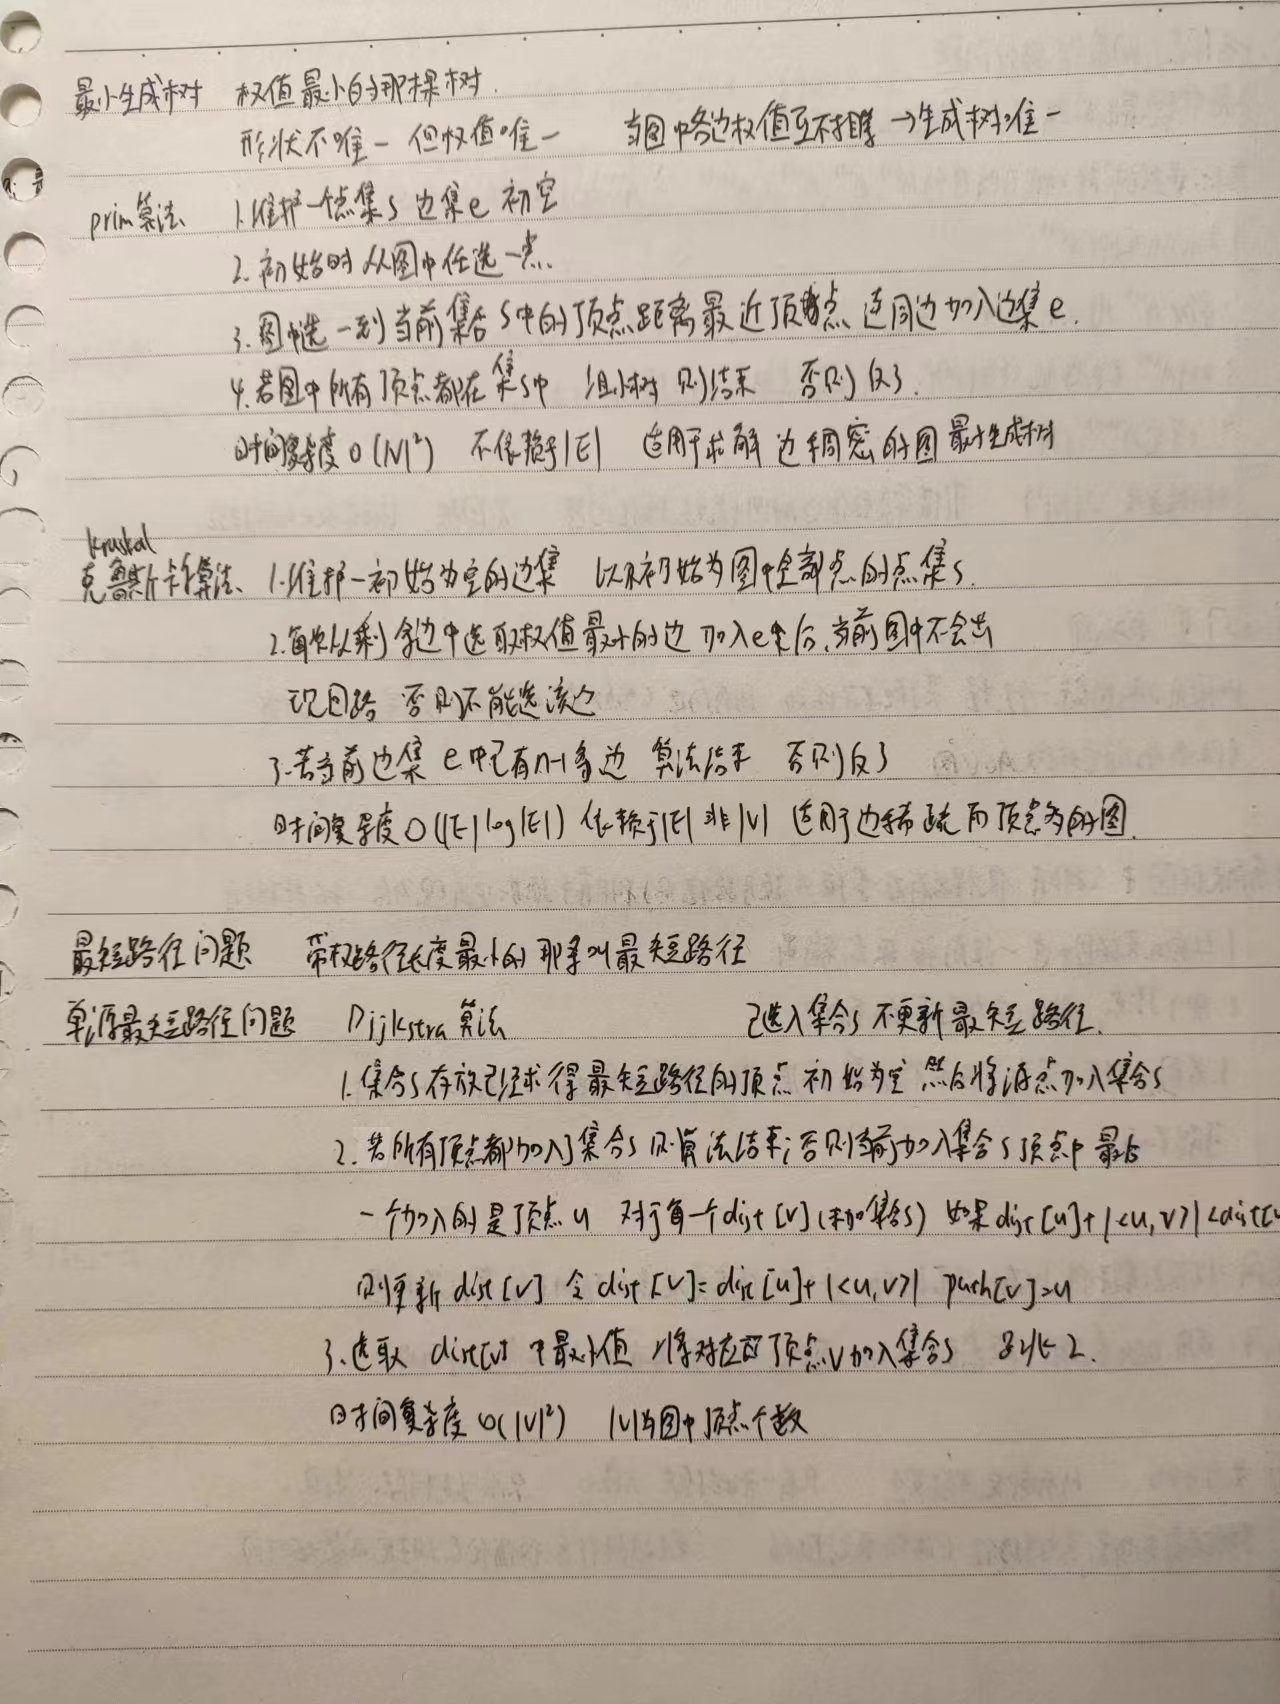 最小生成树 权值最小的那棵树.
形状不唯一 但权值唯一 当图中各边权值互不相等 →生成树唯一
prim算法 1.维护一个点集s 边集e 初空
2.初始时从图中任选一点.
3.图中选一到当前集合S中的顶点距离最近顶点 连同边加入边集e.
4.若图中所有顶点都在集s中 组小树 则结束 否则反3.
时间复杂度O(|V|²) 不依赖于|E| 适用于求解边稠密的图最小生成树
kruskal
克鲁斯卡尔算法. 1.维护一初始为空的边集 以及初始为图中全部点的点集s.
2.每次从剩余边中选取权值最小的边 加入e中后,当前图中不会出
现回路 否则不能选该边
3.若当前边集e中已有n-1条边 算法结束 否则反3
时间复杂度O(|E|log|E|) 依赖于|E|非|V| 适用于边稀疏而顶点多的图.
最短路径问题 带权路径长度最小的那条叫最短路径
单源最短路径问题 Dijkstra算法 已选入集合s 不更新最短路径.
1.集合s存放已经求得最短路径的顶点 初始为空 然后将源点加入集合s
2.若所有顶点都加入了集合s 则算法结束;否则当前加入集合s顶点中最后
一个加入的是顶点u 对于每一个dist[v](未加集合s) 如果dist[u]+|<u,v>|<dist[v
则更新dist[v] 令dist[v]=dist[u]+|<u,v>| path[v]=u
3.选取dist[v]中最小值 将对应的顶点v加入集合s 2.
时间复杂度O(|V|²) |V|为图中顶点个数